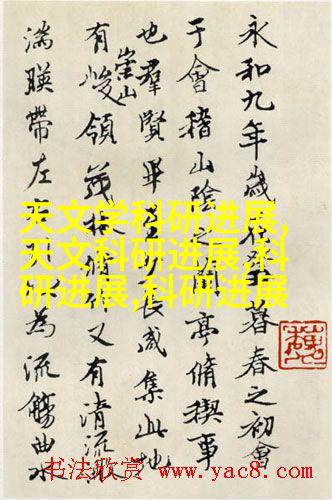 永和九年歲在暮春之初會
于會稽山陰之蘭亭脩禊事
也羣賢畢至少長咸集此地
有崇山峻領茂林脩竹又有清流激
湍暎帶左右為流觴曲水
天文学科研进展,
天文科研进展,科
研进展,科研进展
书法欣赏 www.yac8.com